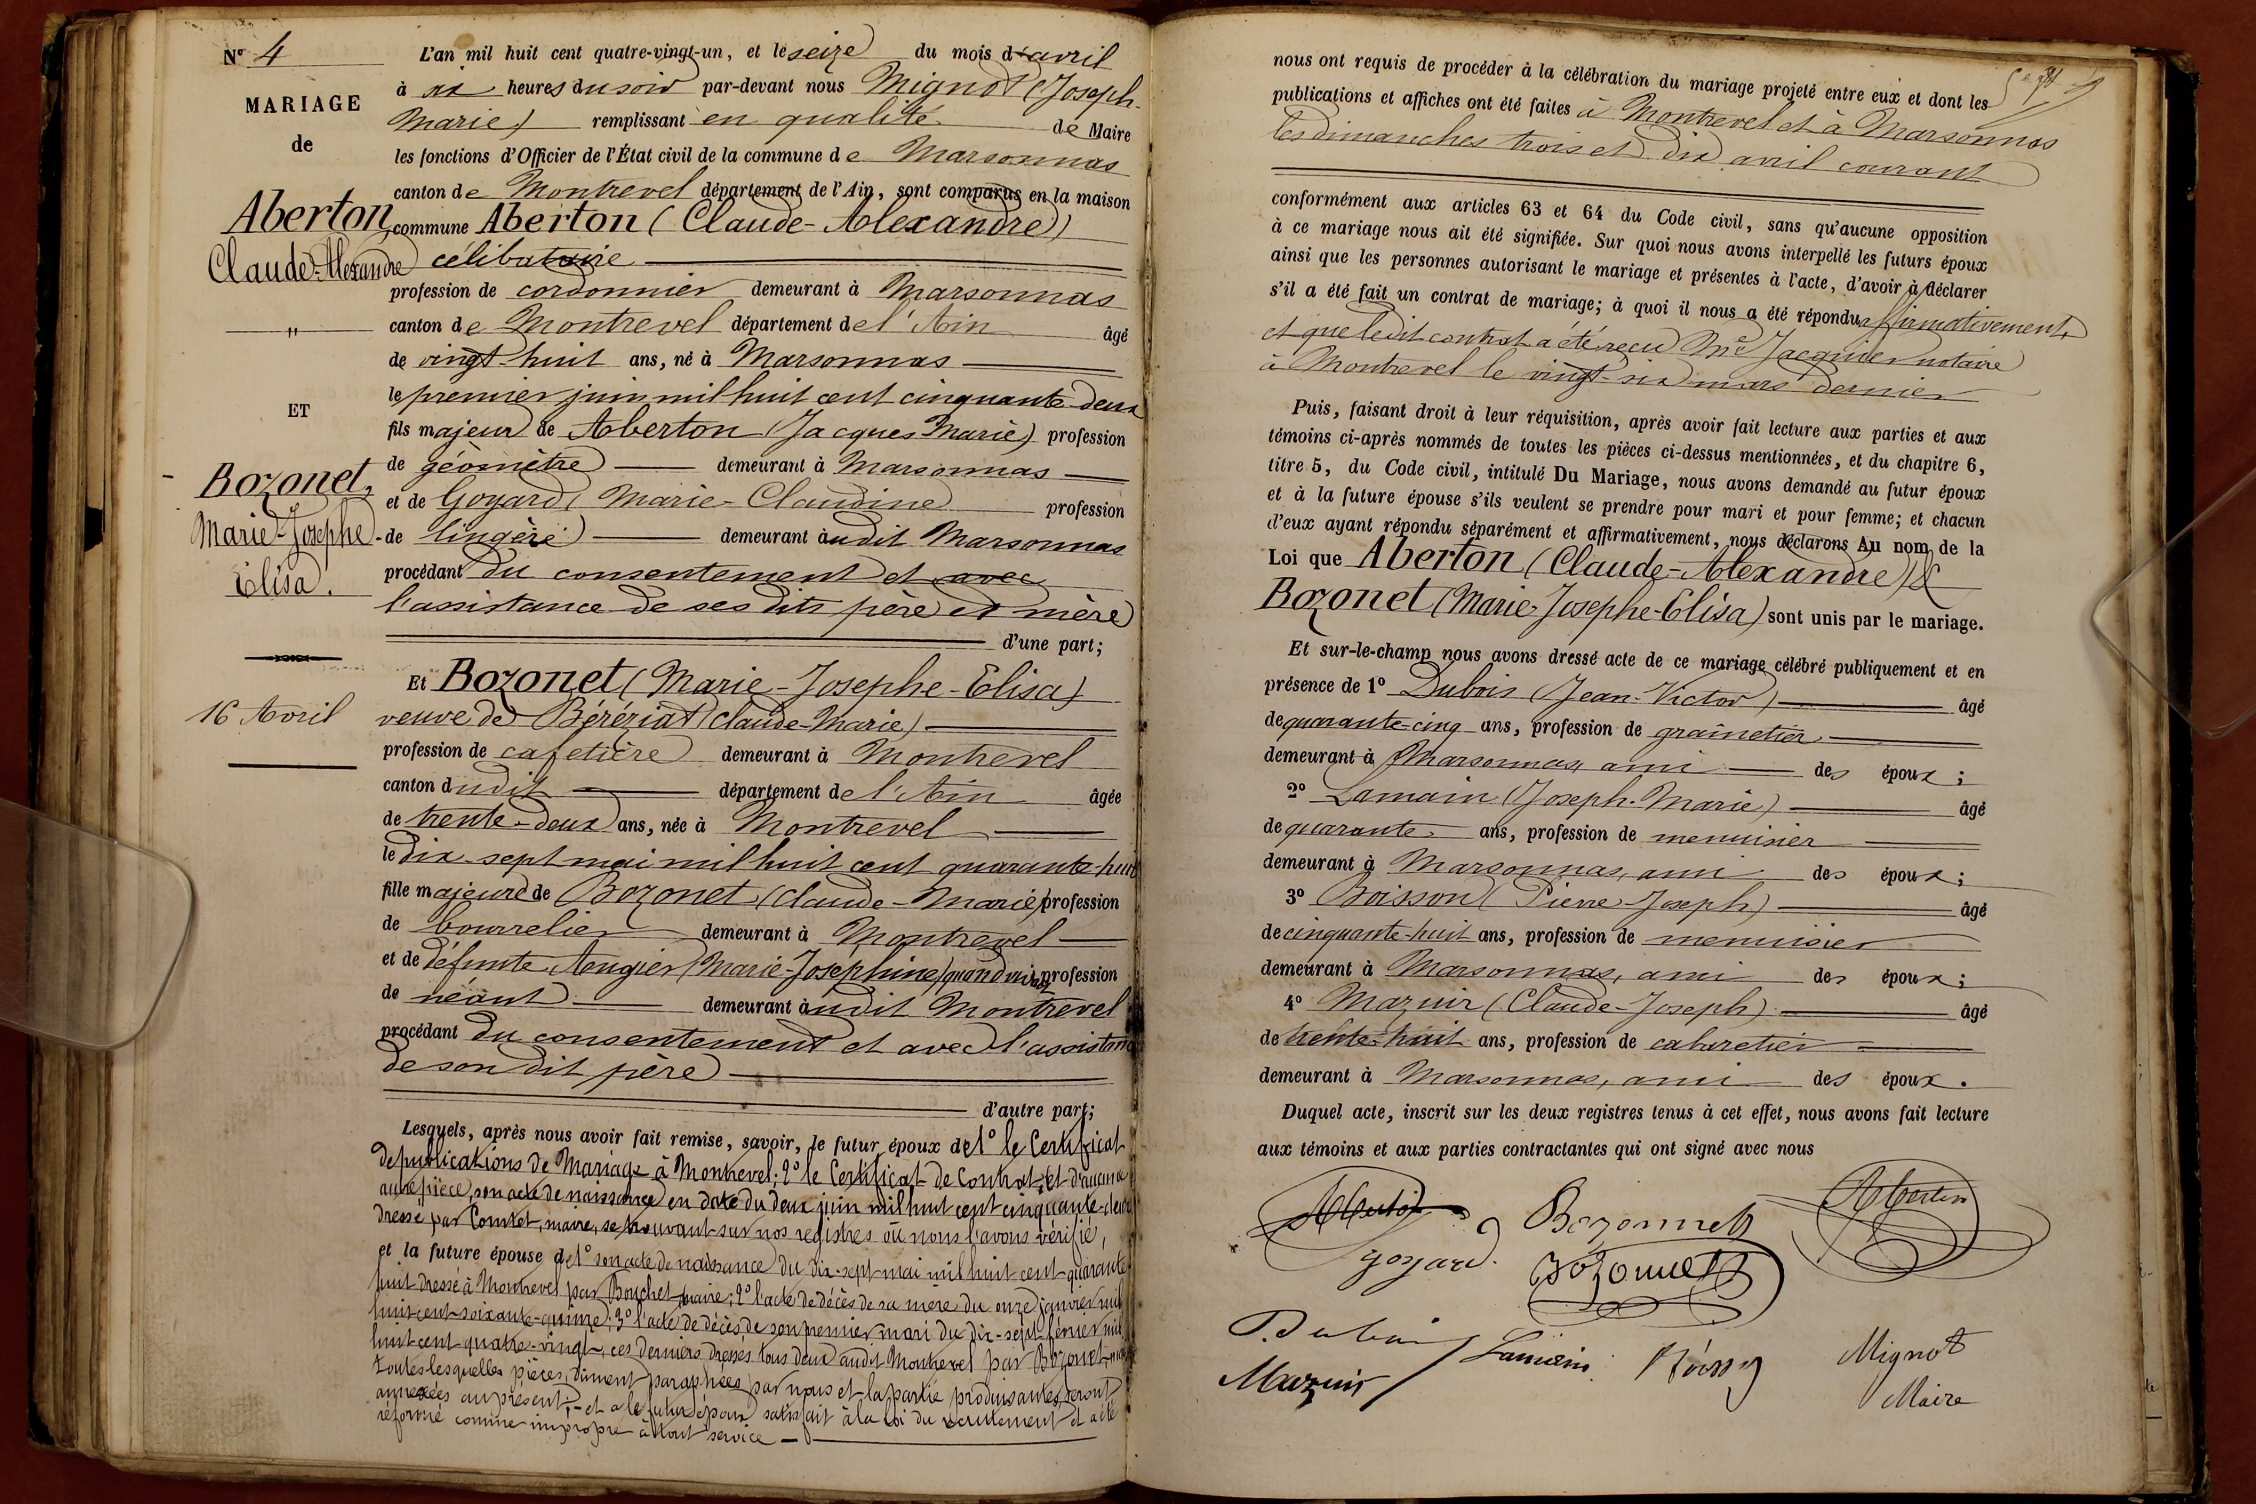 N° 4
MARIAGE
de
Aberton,
Claude-Alexandre
"
ET
Bozonet,
Marie-Josephe-
Elisa.
16 Avril
L'an mil huit cent quatre-vingt-un, et le seize du mois d'avril
à six heures du soir par-devant nous Mignot (Joseph-
Marie) remplissant en qualité de Maire
les fonctions d'Officier de l'État civil de la commune de Marsonnas
canton de Montrevel département de l'Ain, sont comparus en la maison
commune Aberton (Claude-Alexandre)
célibataire
profession de cordonnier demeurant à Marsonnas
canton de Montrevel département de l'Ain âgé
de vingt-huit ans, né à Marsonnas
le premier juin mil huit cent cinquante-deux
fils majeur de Aberton (Jacques Marie) profession
de géomètre demeurant à Marsonnas
et de Goyard (Marie-Claudine profession
de lingère demeurant audit Marsonnas
procédant du consentement et avec
l'assistance de ses dits père et mère
d'une part;
Et Bozonet (Marie-Josephe-Elisa)
veuve de Béréziat (Claude-Marie)
profession de cafetière demeurant à Montrevel
canton dudit département de l'Ain âgée
de trente-deux ans, née à Montrevel
le dix-sept mai mil huit cent quarante-huit
fille majeure de Bozonet (Claude-Marie) profession
de bourrelier demeurant à Montrevel
et de défunte Augier (Marie-Joséphine) quand vivait profession
de néant demeurant audit Montrevel
procédant du consentement et avec l'assistance
de son dit père
d'autre part;
Lesquels, après nous avoir fait remise, savoir, le futur époux de 1° le Certificat
de publications de Mariage à Montrevel; 2° le Certificat de Contrat; et d'aucune
autre pièce, son acte de naissance en date du deux juin mil huit cent cinquante-deux
dressé par Comtet, maire, se trouvant sur nos registres où nous l'avons vérifié,
et la future épouse de 1° son acte de naissance du dix-sept mai mil huit cent quarante
huit dressé à Montrevel par Bouchet, maire; 2° l'acte de décès de sa mère du onze janvier mil
huit cent soixante-quinze; 3° l'acte de décès de son premier mari du dix-sept février mil
huit cent quatre-vingt, ces derniers dressés tous deux audit Montrevel par Bozonet,
toutes lesquelles pièces, dûment paraphées par nous et la partie produisante, seront
annexées au présent; et a le futur époux satisfait à la loi du recrutement et a été
réformé comme impropre à tout service
nous ont requis de procéder à la célébration du mariage projeté entre eux et dont les
publications et affiches ont été faites à Montrevel et à Marsonnas
les dimanches trois et dix avril courant
conformément aux articles 63 et 64 du Code civil, sans qu'aucune opposition
à ce mariage nous ait été signifiée. Sur quoi nous avons interpellé les futurs époux
ainsi que les personnes autorisant le mariage et présentes à l'acte, d'avoir à déclarer
s'il a été fait un contrat de mariage; à quoi il nous a été répondu affirmativement,
et que ledit contrat a été reçu Me Jacquier notaire
à Montrevel le vingt-six mars dernier
Puis, faisant droit à leur réquisition, après avoir fait lecture aux parties et aux
témoins ci-après nommés de toutes les pièces ci-dessus mentionnées, et du chapitre 6,
titre 5, du Code civil, intitulé Du Mariage, nous avons demandé au futur époux
et à la future épouse s'ils veulent se prendre pour mari et pour femme; et chacun
d'eux ayant répondu séparément et affirmativement, nous déclarons Au nom de la
Loi que Aberton (Claude-Alexandre) &
Bozonet (Marie-Josephe-Elisa) sont unis par le mariage.
Et sur-le-champ nous avons dressé acte de ce mariage célébré publiquement et en
présence de 1° Dubois (Jean-Victor) âgé
de quarante-cinq ans, profession de grainetier
demeurant à Marsonnas, ami des époux;
2° Lamain (Joseph-Marie) âgé
de quarante ans, profession de menuisier
demeurant à Marsonnas, ami des époux;
3° Boisson (Pierre-Joseph) âgé
de cinquante-huit ans, profession de menuisier
demeurant à Marsonnas, ami des époux;
4° Mazuir (Claude-Joseph) âgé
de trente-huit ans, profession de cabaretier
demeurant à Marsonnas, ami des époux.
Duquel acte, inscrit sur les deux registres tenus à cet effet, nous avons fait lecture
aux témoins et aux parties contractantes qui ont signé avec nous
Aberton Bozonnet Aberton
goyard. Bozonnet
Dubois Lamain Boisson Mignot
Mazuir Maire